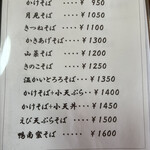 かけそば ・・・ ¥ 950
月見そば ・・・・ ¥1050
きつねそば ・・・ ¥1100
かきあげそば ・・・ ¥1300
山菜そば ・・・・ ¥1200
きのこそば ・・・ ¥1250
温かいとろろそば ・・・ ¥1350
かけそば+小天ぷら ・・・ ¥1400
かけそば+小天丼 ・・・ ¥1450
えび天ぷらそば ・・・ ¥1500
鴨南蛮そば ・・・・ ¥1600